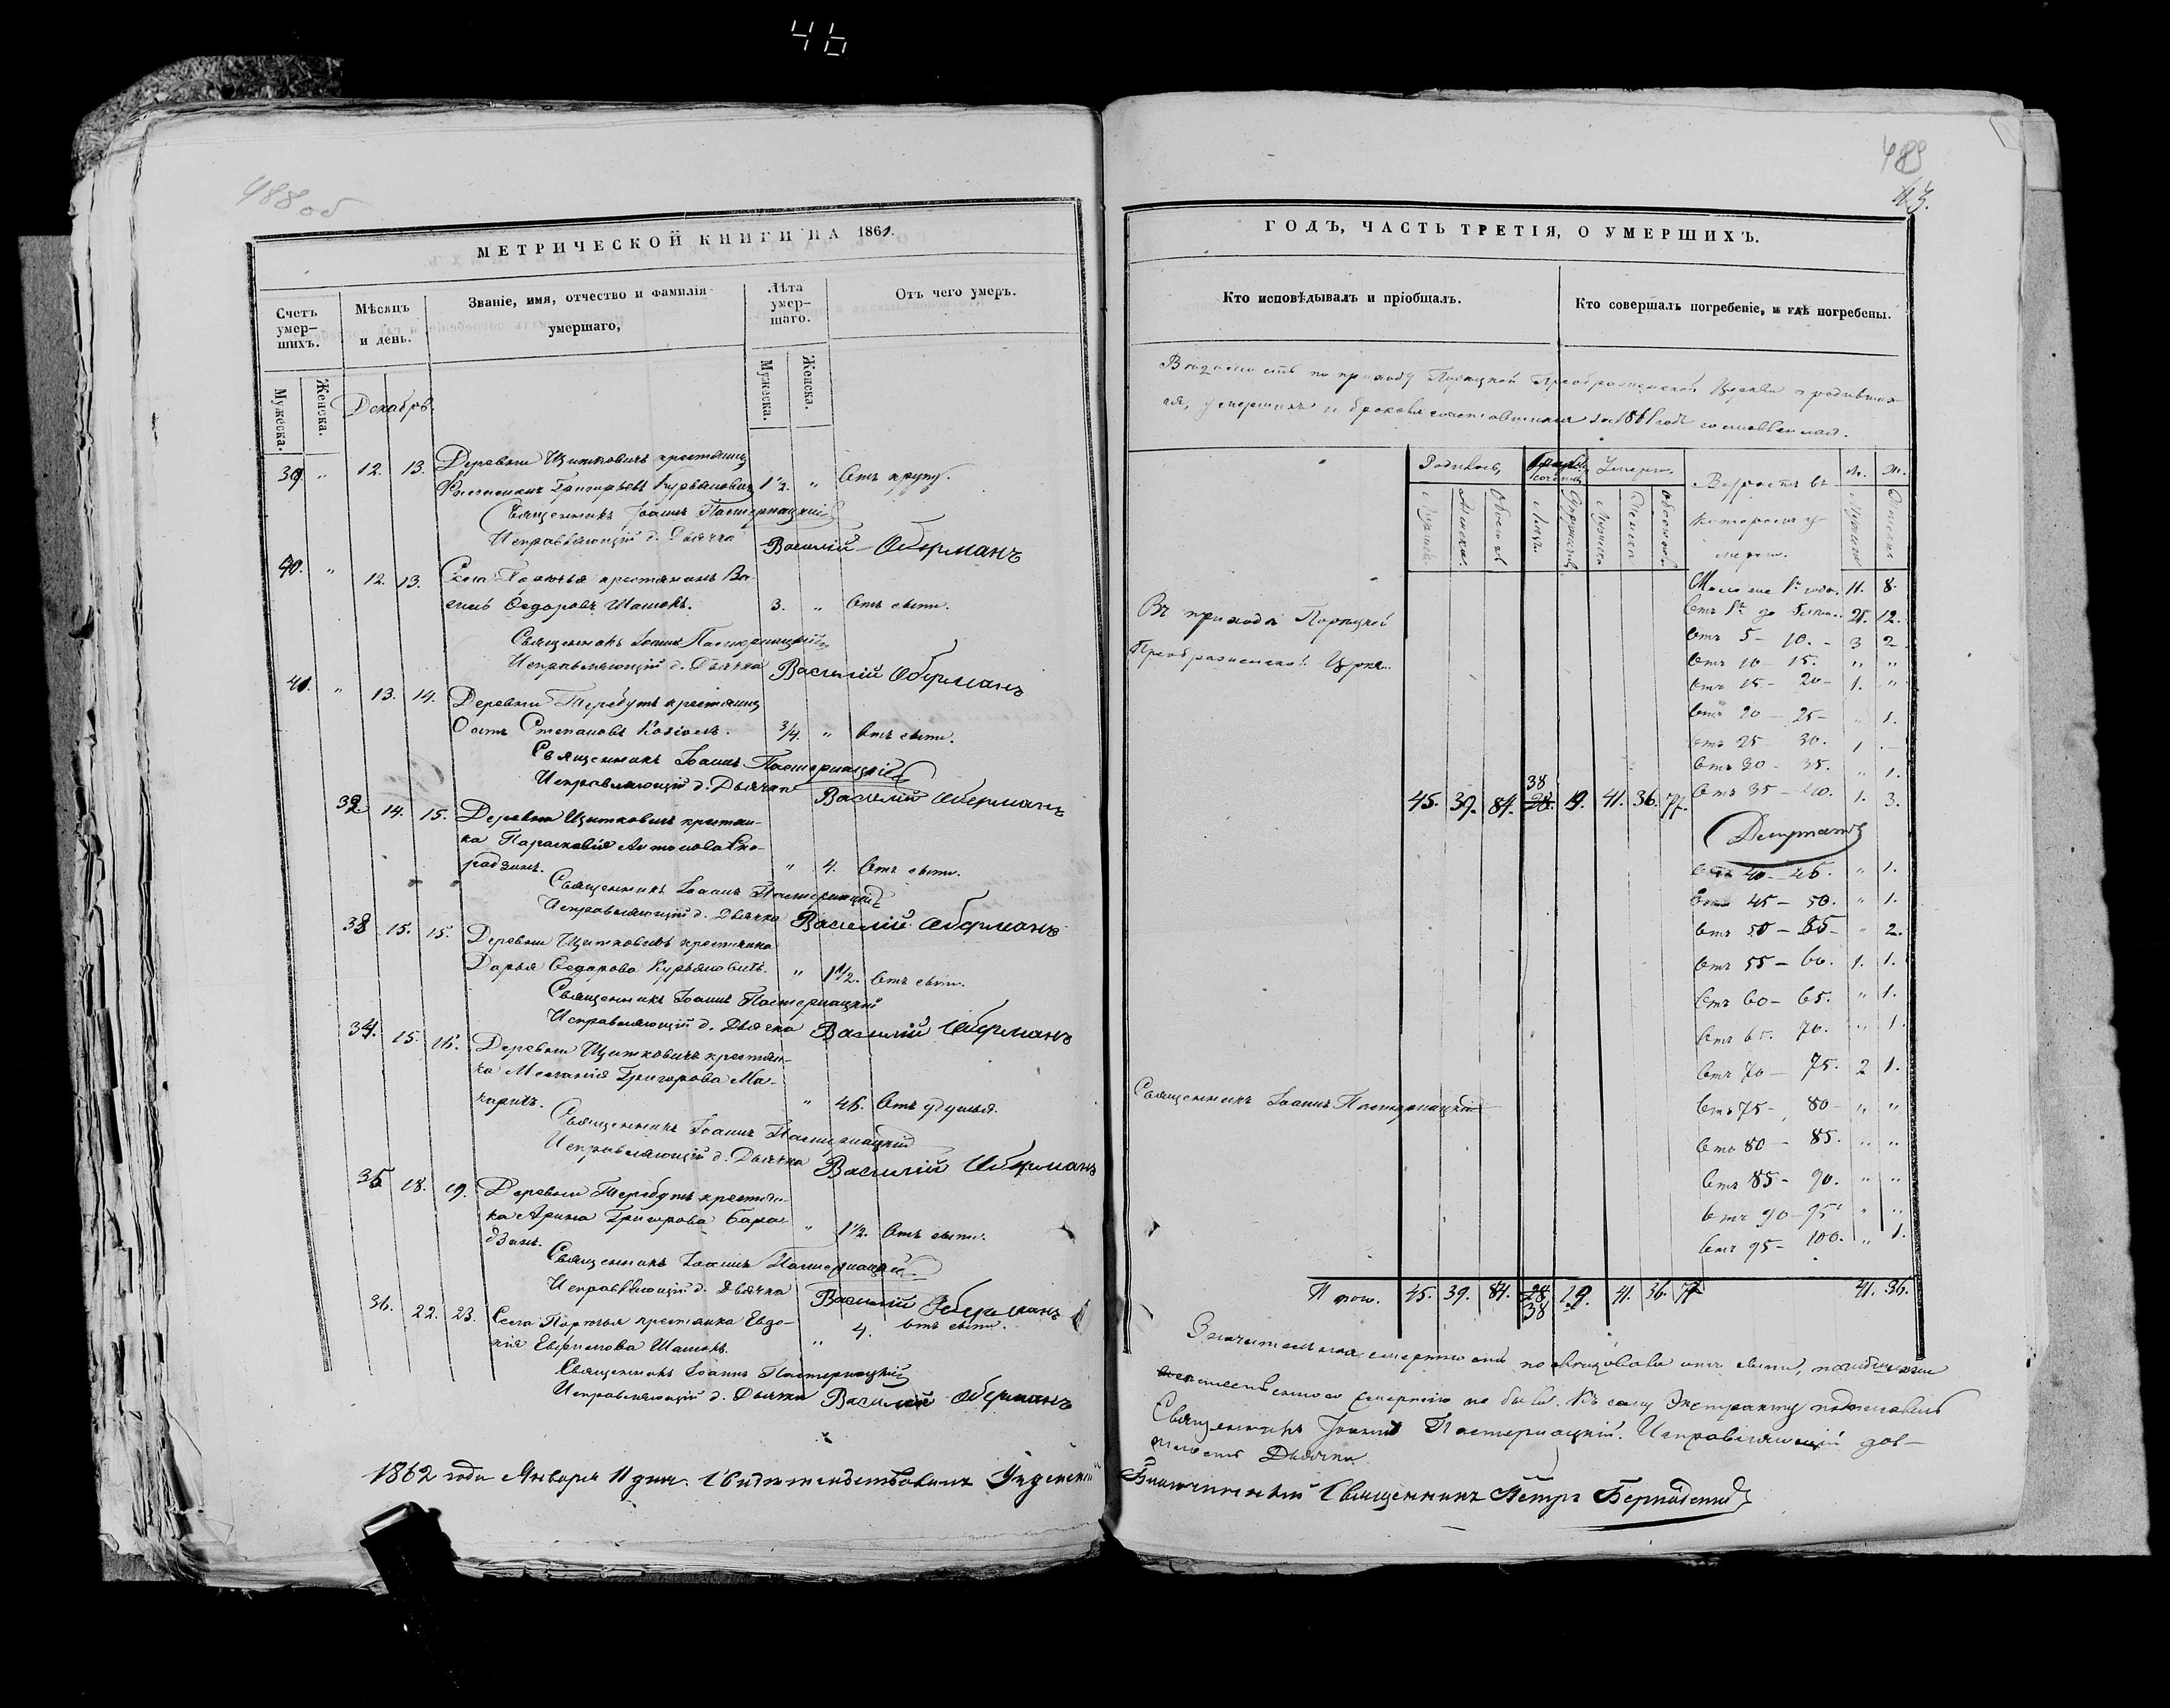 46
488 об
МЕТРИЧЕСКОЙ КНИГИ НА 1861.
Счетъ умер-
шихъ.
Мѣсяцъ
и день.
Званіе, имя, отчество и фамилія
умершаго,
Лѣта
умер-
шаго.
Отъ чего умеръ.
Мужеска.
Женска.
Мужеска.
Женска.
Декабрь.
39 " 12. 13. Деревни Щитковичъ крестьянинъ
Григорьевъ Курьяновичъ 1 1/2. " Отъ крупу.
Священникъ Іоаннъ Пастернацкій
Исправляющій д. Дьячка Василій Оберманъ
40. " 12. 13. Села Поречья крестьянинъ Ва-
силь Ѳедоровъ Шашокъ. 3. " Отъ оспы.
Священникъ Іоаннъ Пастернацкій
Исправляющій д. Дьячка Василій Оберманъ
41. " 13. 14. Деревни Теребутъ крестьянинъ
Степановъ Козіолъ. 3/4. " Отъ оспы.
Священникъ Іоаннъ Пастернацкій
Исправляющій д. Дьячка Василій Оберманъ
32. 14. 15. Деревни Щитковичъ крестьян-
ка Параскевія Антонова Ско-
радзинъ. " 4. Отъ оспы.
Священникъ Іоаннъ Пастернацкій
Исправляющій д. Дьячка Василій Оберманъ
33 15. 15. Деревни Щитковичъ крестьянка
Дарья Ѳедорова Курьяновичъ. " 1 1/2. Отъ оспы.
Священникъ Іоаннъ Пастернацкій
Исправляющій д. Дьячка Василій Оберманъ
34. 15. 16. Деревни Щитковичъ крестьян-
ка Меланія Григорова Ма-
каричъ. " 46. Отъ удушья.
Священникъ Іоаннъ Пастернацкій
Исправляющій д. Дьячка Василій Оберманъ
35 18. 19. Деревни Теребутъ крестьян-
ка Арина Григорова
" 1 1/2. Отъ оспы.
Священникъ Іоаннъ Пастернацкій
Исправляющій д. Дьячка Василій Оберманъ
36. 22. 23. Села Поречья крестьянка Евдо-
кія Ефимова Шашокъ. " 4. Отъ оспы.
Священникъ Іоаннъ Пастернацкій
Исправляющій д. Дьячка Василій Оберманъ
1862 года Января 11 дня. Свидѣтельствовалъ
489
43.
ГОДЪ, ЧАСТЬ ТРЕТІЯ, О УМЕРШИХЪ.
Кто исповѣдывалъ и пріобщалъ.
Кто совершалъ погребеніе, и гдѣ погребены.
Вѣдомость по приходу Преображенской Церкви о родивших-
ся, умершихъ и бракосочетавшихся за 1861 годъ составленная.
Родилось, Умерло.
Возрастъ въ
которомъ у-
мерли.
М. Ж.
Менѣе 1го года. 11. 8.
Отъ 1го до 5 21. 12.
Отъ 5 - 10. - 3 2
Отъ 10 - 15. " "
Отъ 15 - 20 - 1. "
Отъ 20 - 25 - " 1.
Отъ 25 30. 1 -
Отъ 30 - 35. " 1.
Отъ 35 - 40. 1. 3.
Въ приходѣ
Преображенской Церкви
45. 39. 84. 28. 38 19. 41. 36. 77.
Отъ 40 - 45. " 1.
Отъ 45 - 50. " 1.
Отъ 50 - 55 - " 2.
Отъ 55 - 60. 1. 1.
Отъ 60 - 65. " 1.
Отъ 65. 70. " 1.
Отъ 70 - 75. 2 1.
Отъ 75 - 80 - " "
Отъ 80 - 85. " "
Отъ 85 - 90. " "
Отъ 90 - 95 " "
Отъ 95 - 100. " 1.
Священникъ Іоаннъ Пастернацкій
Итого. 45. 39. 84. 28 38 19. 41. 36. 77 41. 36.
Значительная смертность оспы,
смертію не было. Къ сему Экстракту подписались
Священникъ Іоаннъ Пастернацкій. Исправляющій дол-
жность Дьячка
Благочинный Священникъ Петръ